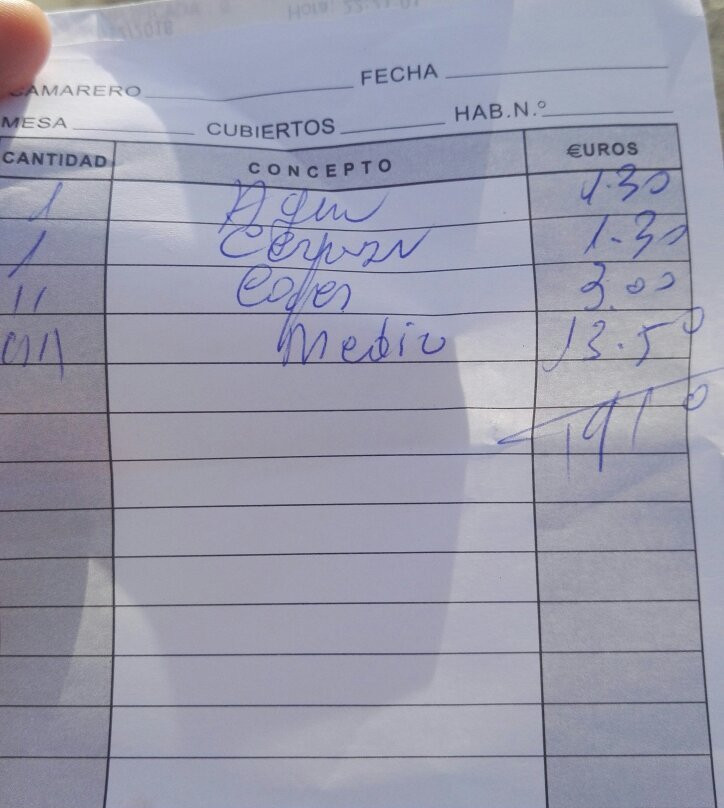 CAMARERO FECHA
MESA CUBIERTOS HAB.N.º
CANTIDAD CONCEPTO €UROS
1 Agua 1.30
1 Cerveza 1.30
11 3.00
Medio 13.50
1910